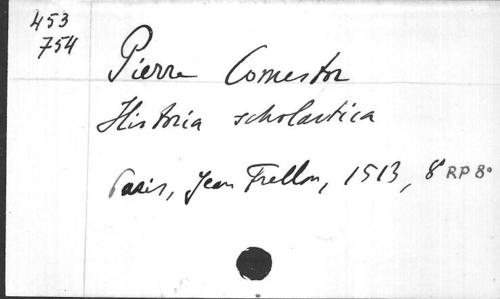 453
754
Pierre Comestor
Historia scholastica
Paris, Jean Frellon, 1513, 8° RP 8°